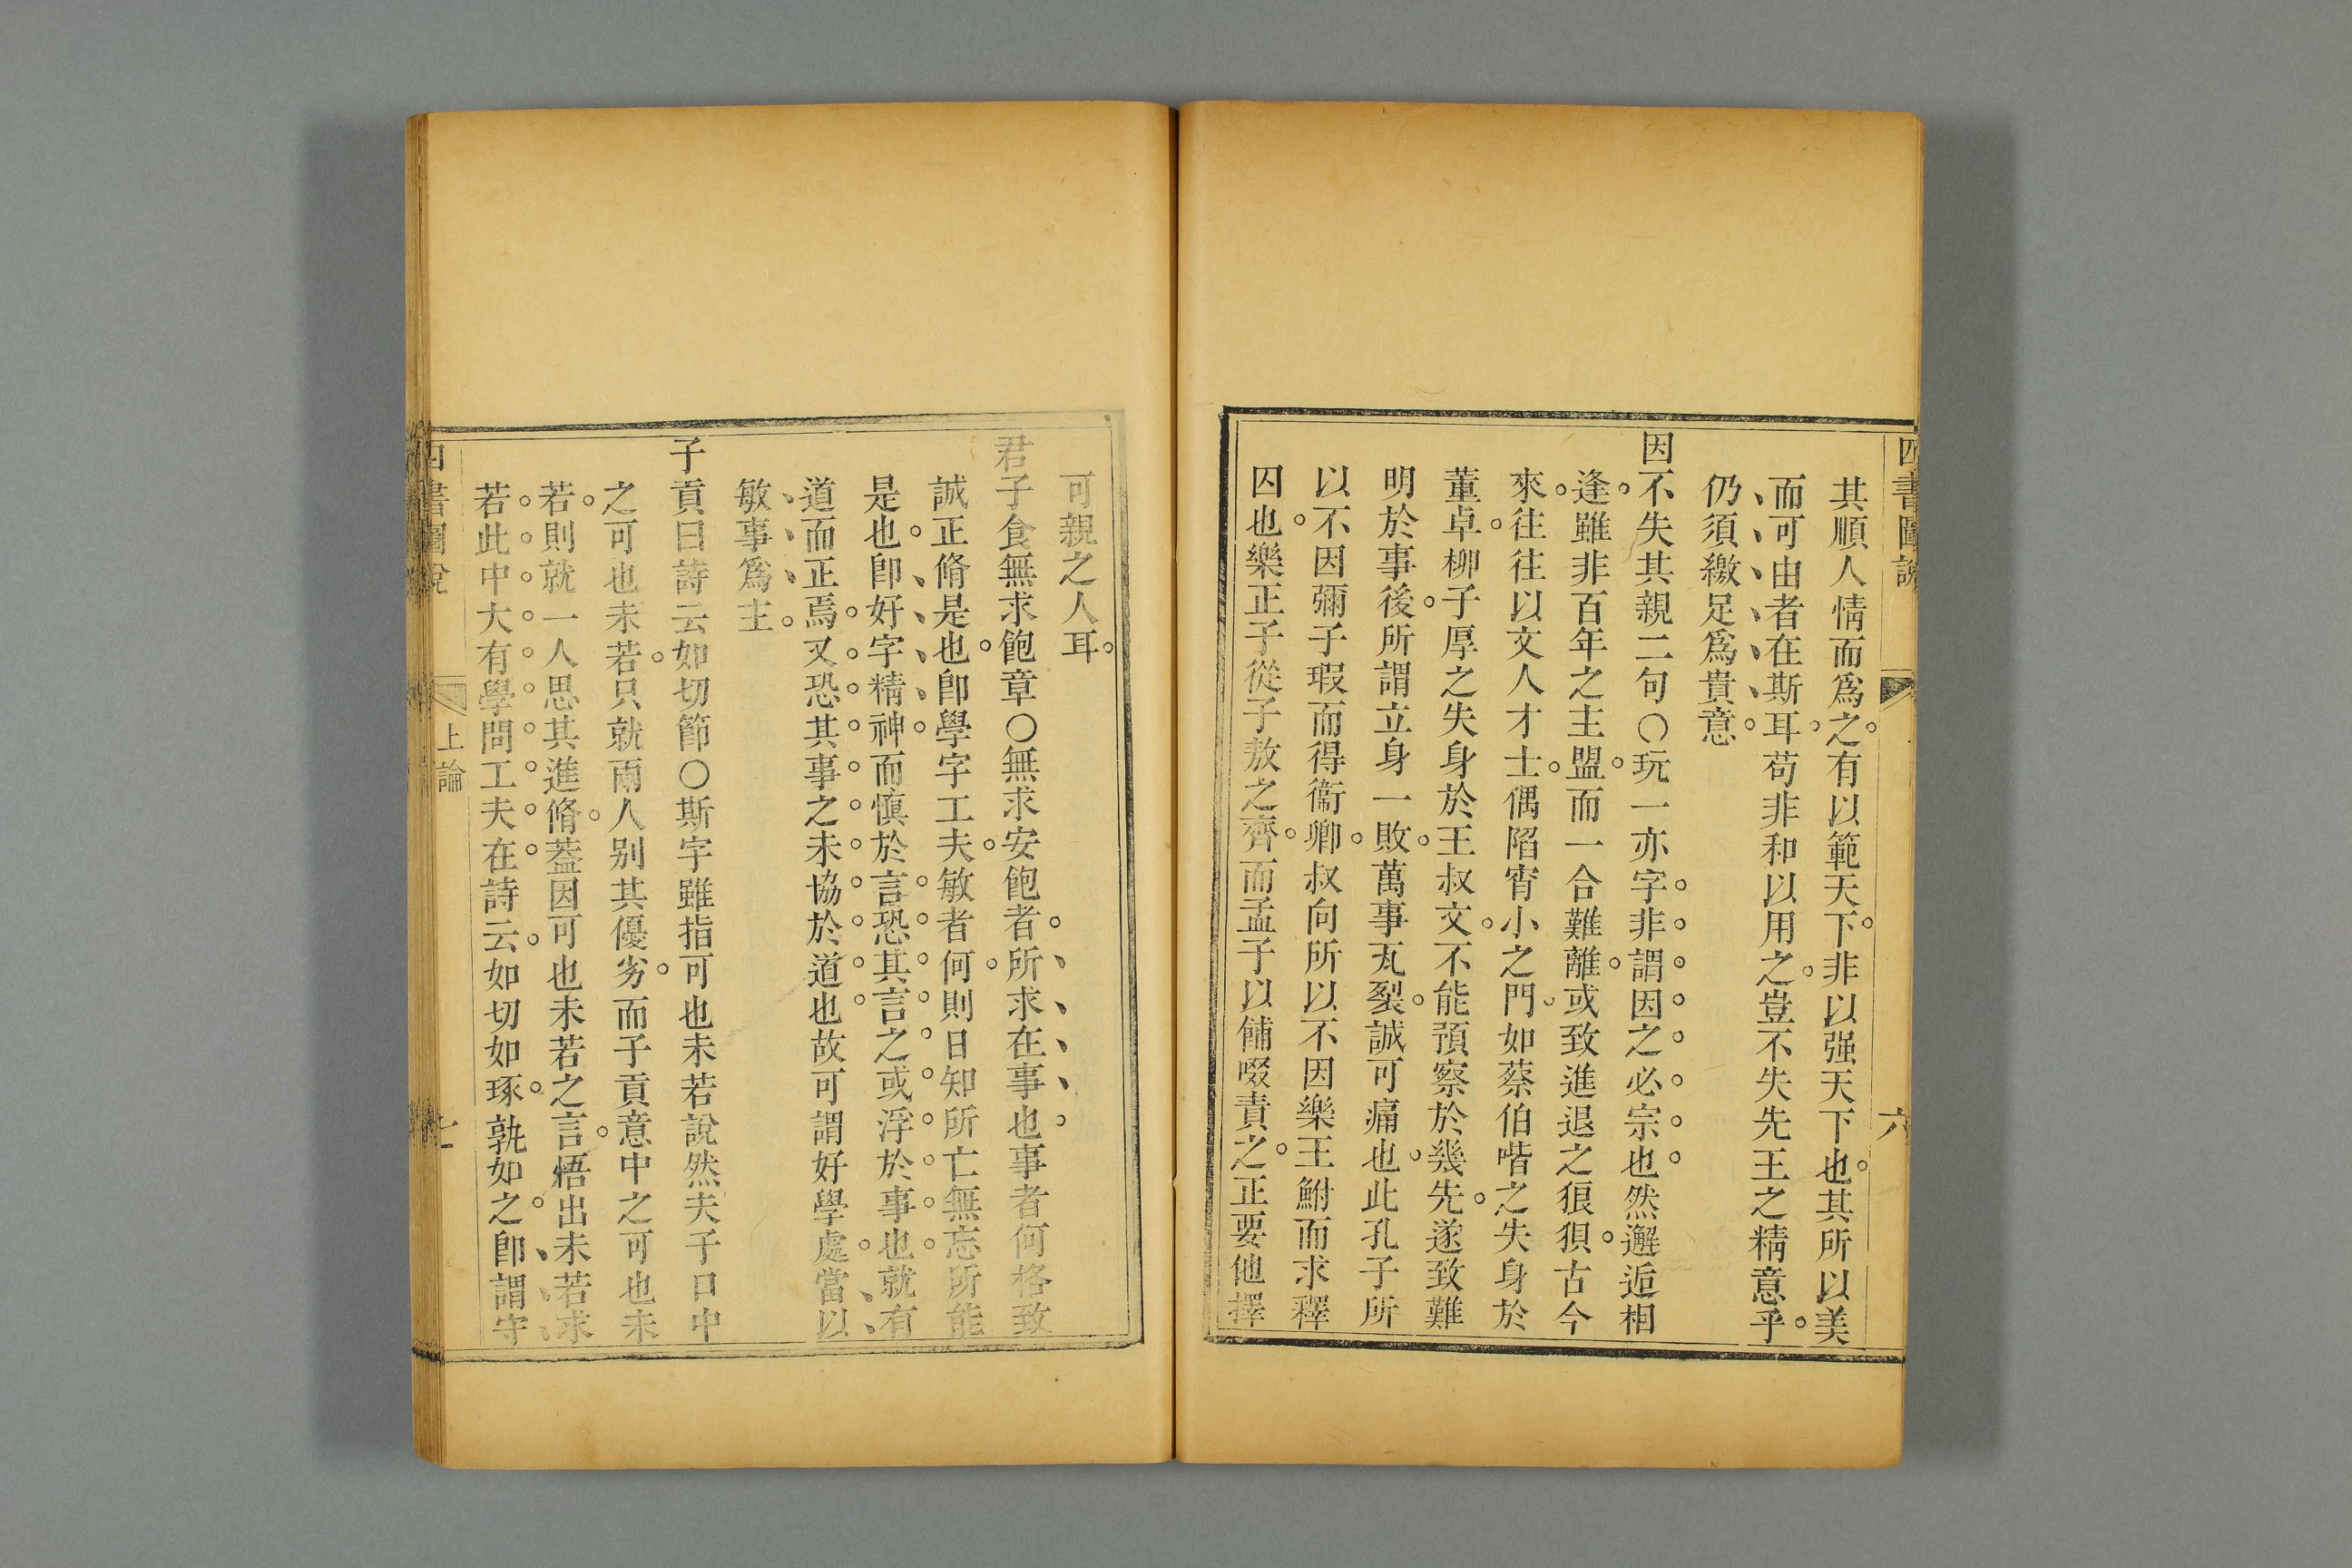 四書圖說
六
其順人情而爲之有以範天下非以强天下也其所以美
而可由者在斯耳苟非和以用之豈不失先王之精意乎
仍須繳足爲貴意
因不失其親二句〇玩一亦字非謂因之必宗也然邂逅相
逢雖非百年之主盟而一合難離或致進退之狼狽古今
來往往以文人才士偶陷宵小之門如蔡伯喈之失身於
董卓柳子厚之失身於王叔文不能預察於幾先遂致難
明於事後所謂立身一敗萬事瓦裂誠可痛也此孔子所
以不因彌子瑕而得衞卿叔向所以不因樂王鮒而求釋
囚也樂正子從子敖之齊而孟子以餔啜責之正要他擇
可親之人耳
君子食無求飽章〇無求安飽者所求在事也事者何格致
誠正脩是也卽學字工夫敏者何則日知所亡無忘所能
是也卽好字精神而慎於言恐其言之或浮於事也就有
道而正焉又恐其事之未協於道也故可謂好學處當以
敏事爲主
子貢曰詩云如切節〇斯字雖指可也未若說然夫子口中
之可也未若只就兩人別其優劣而子貢意中之可也未
若則就一人思其進脩蓋因可也未若之言悟出未若求
若此中大有學問工夫在詩云如切如琢孰如之卽謂守
四書圖說
上論
七